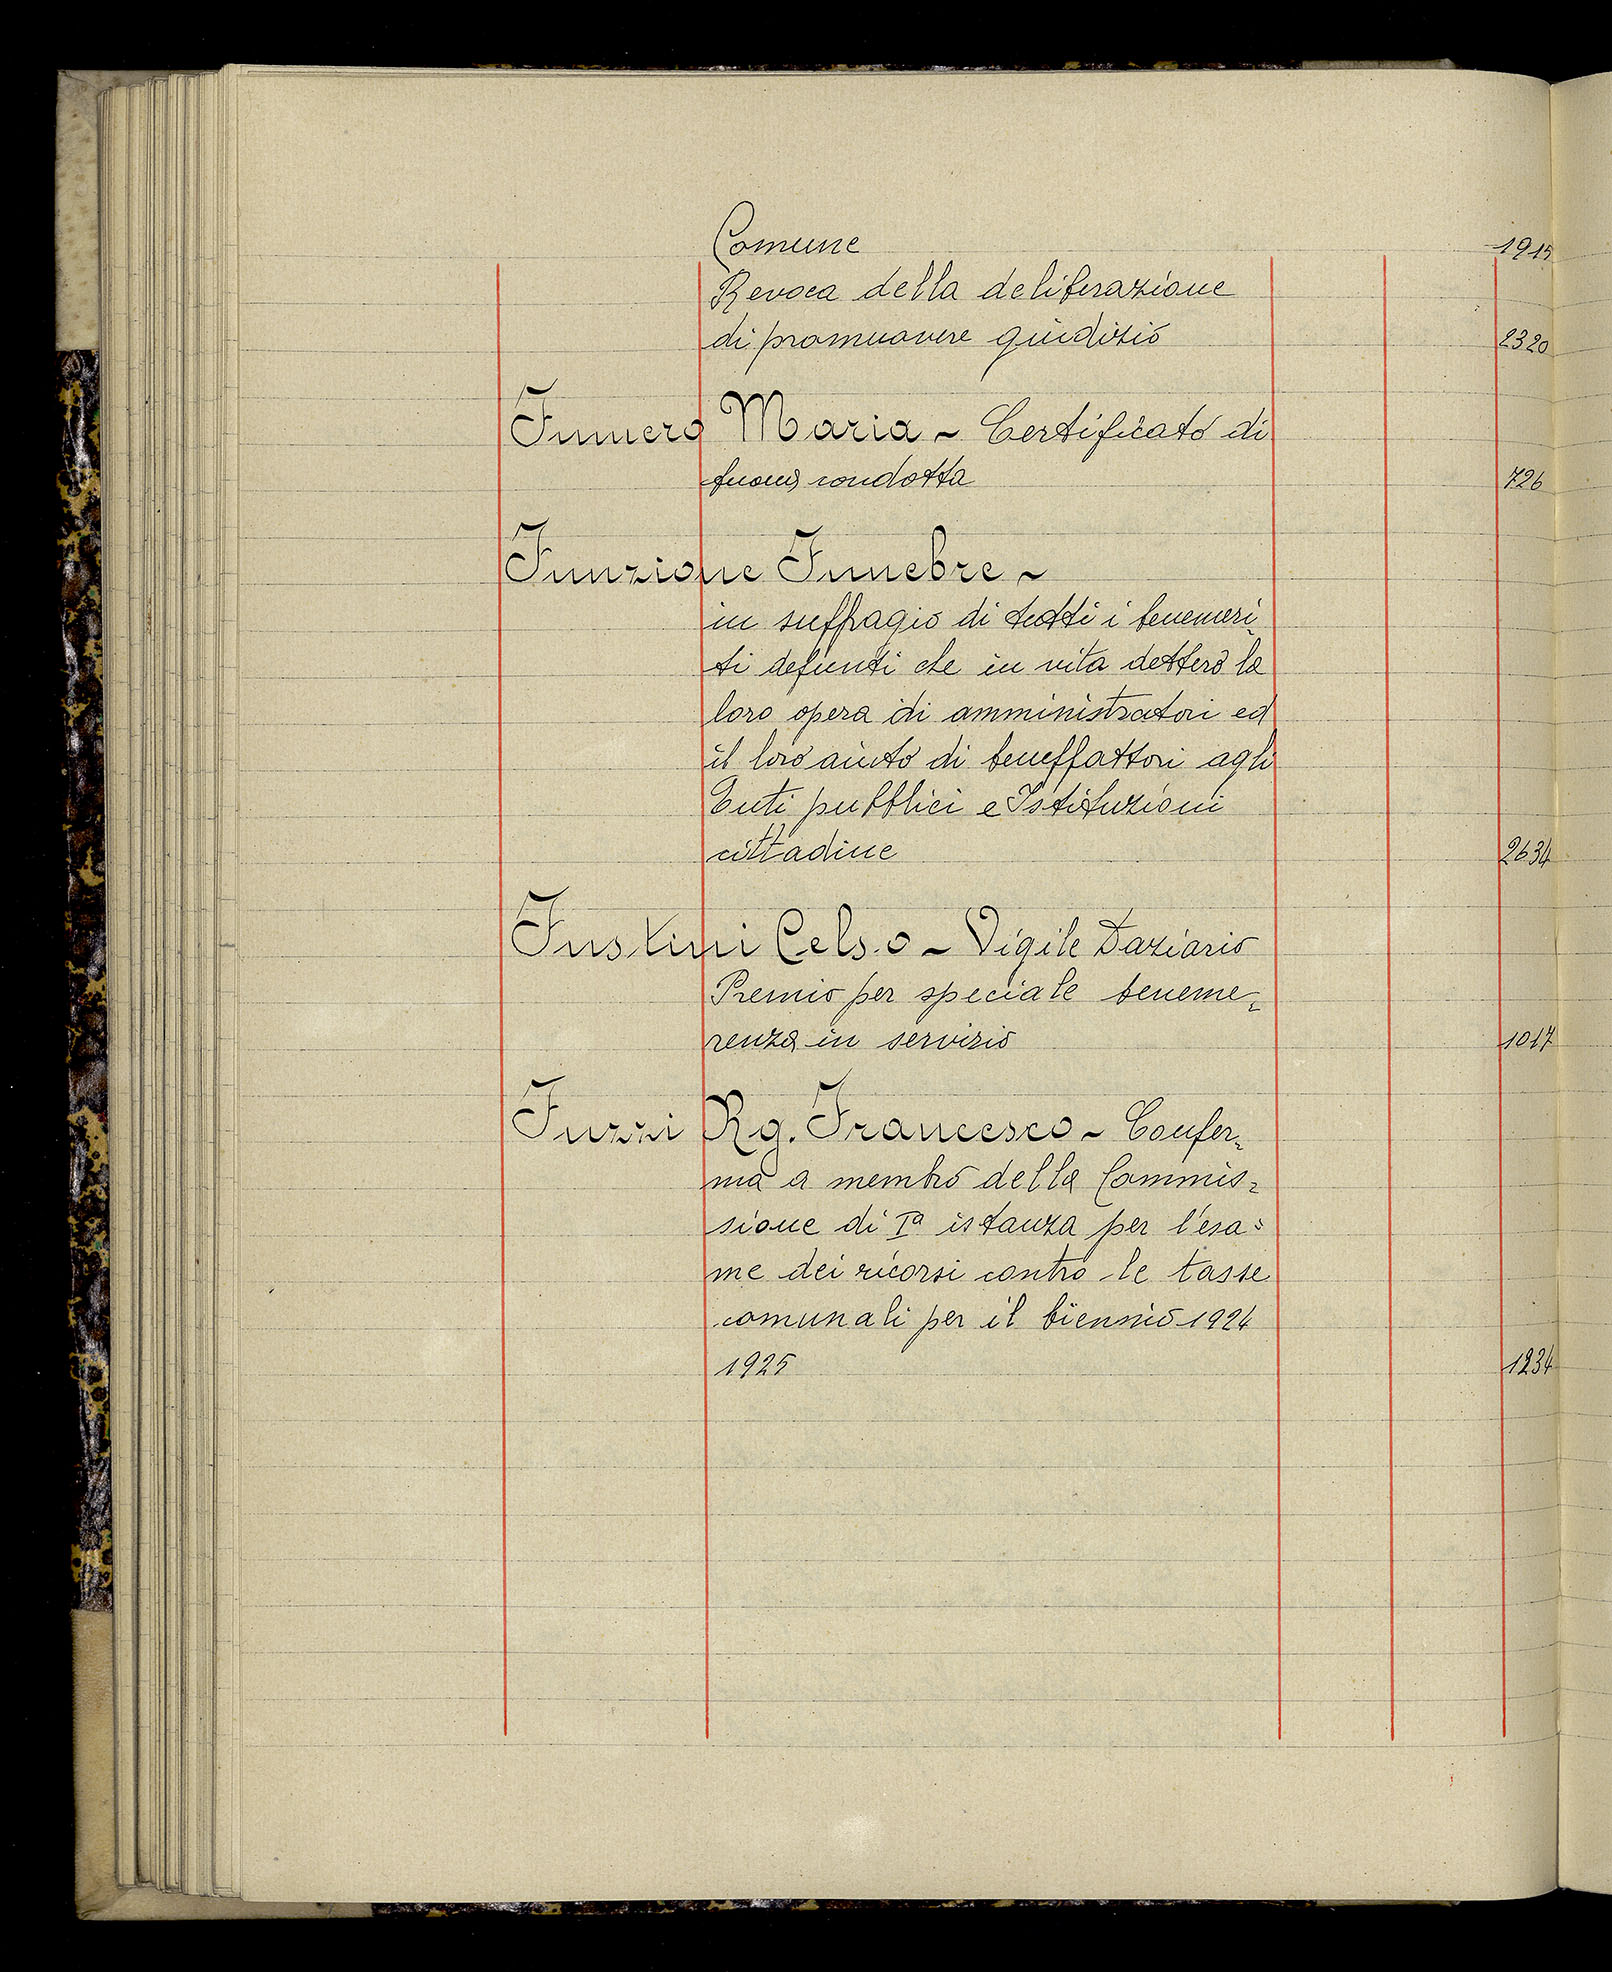 Comune 1915
Revoca della deliberazione
di promuovere giudizio 2320
Fumero Maria ~ Certificato di
buona condotta 726
Funzione Funebre ~
in suffragio di tutti i benemeri-
ti defunti che in vita dettero la
loro opera di amministratori ed
il loro aiuto di beneffattori agli
Enti pubblici e Istituzioni
cittadine 2634
Fustini Celso ~ Vigile Daziario
Premio per speciale beneme=
renza in servizio 1017
Fuzzi Rg. Francesco ~ Confer=
ma a membro della Commis=
sione di Iª istanza per l'esa=
me dei ricorsi contro le tasse
comunali per il biennio 1924
1925 1234